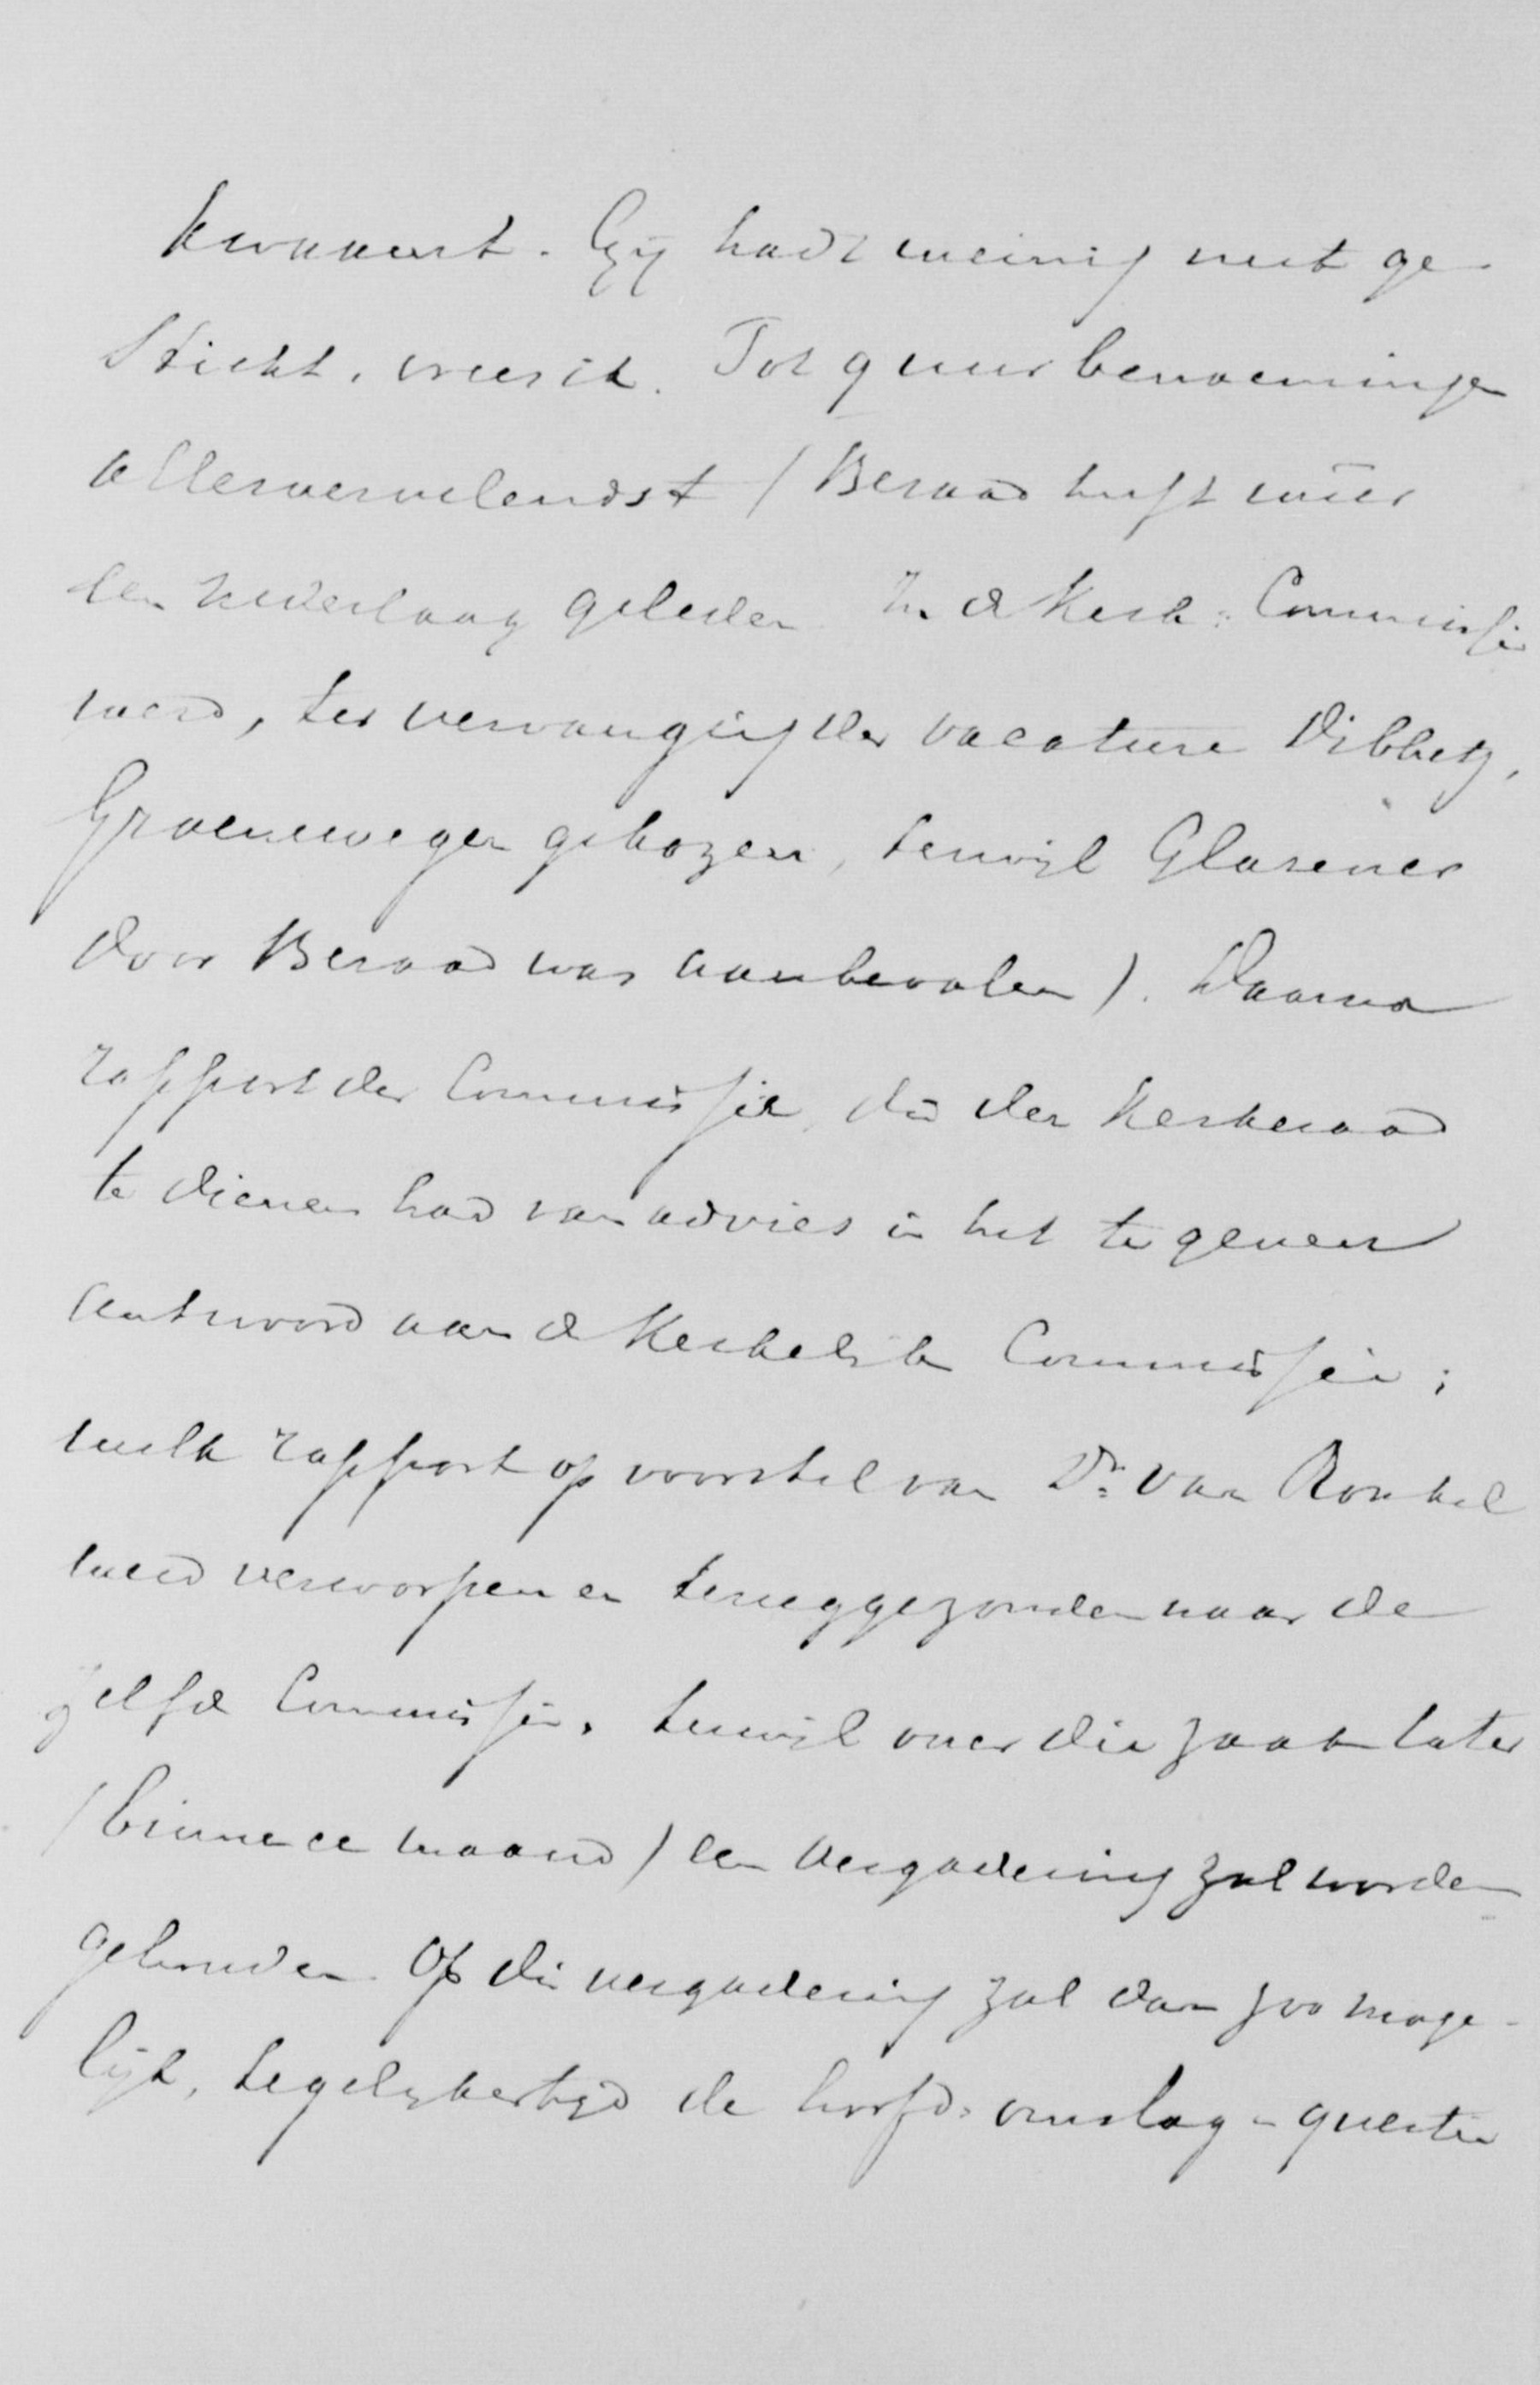 kwaamt. Gij hadt weinig nut ge-
sticht, vrees ik. Tot 9 uur benoemingen
allervervelendst (Beraad heeft weêr
een nederlaag geleden. In de Kerk: Commissie
werd, ter vervanging der vacature Dibbetz,
Groeneweger gekozen, terwijl Glasener
door Beraad was aanbevolen). Daarna
rapport der Commissie, die den Kerkeraad
te dienen had van advies in het te geven
antwoord aan de Kerkelijke Commissie;
welk rapport op voorstel van Dr. van Ronkel
werd verworpen en teruggezonden naar de
zelfde Commissie, terwijl over die zaak later
(binnen ee maand) een vergadering zal worden
gehouden. Op die vergadering zal dan zoo moge-
lijk, tegelijkertijd de hoofd-omslag-questie